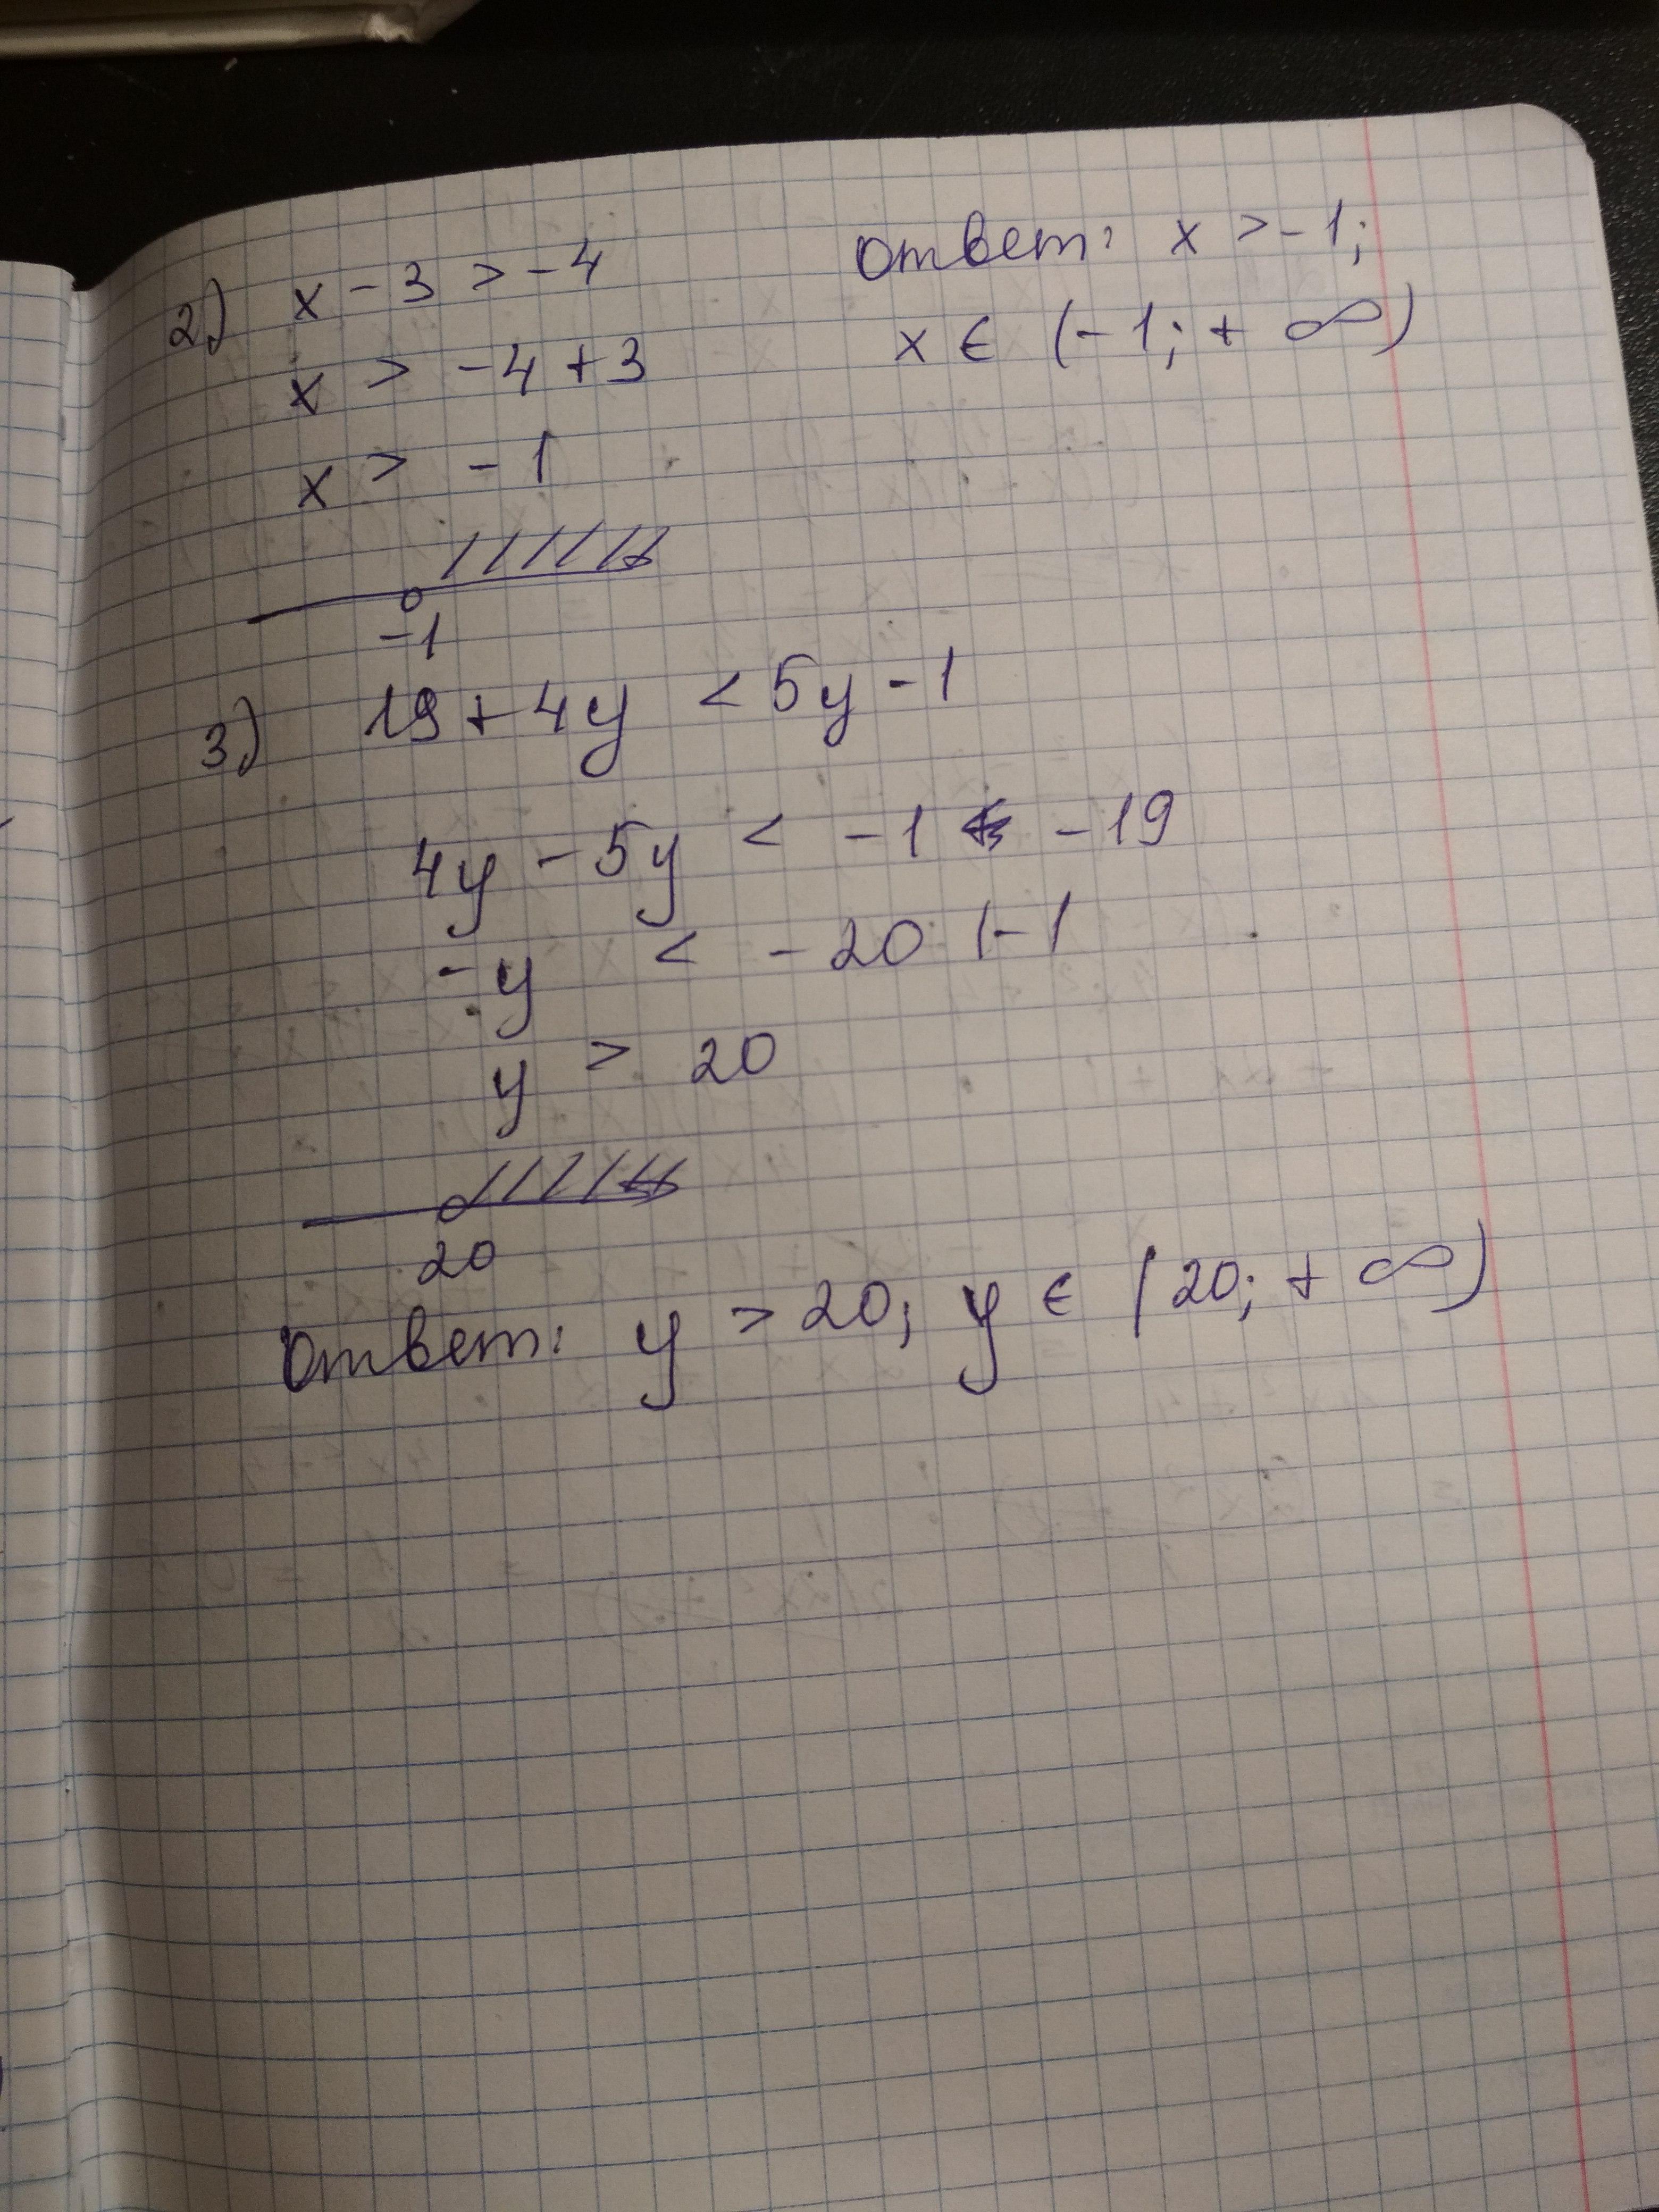 2) x - 3 > -4
x > -4 + 3
x > -1
-1
Ответ: x > -1;
x ∈ (-1; + ∞)
3) 19 + 4y < 5y - 1
4y - 5y < -1 - 19
-y < -20 |-1
y > 20
20
Ответ: y > 20; y ∈ (20; + ∞)